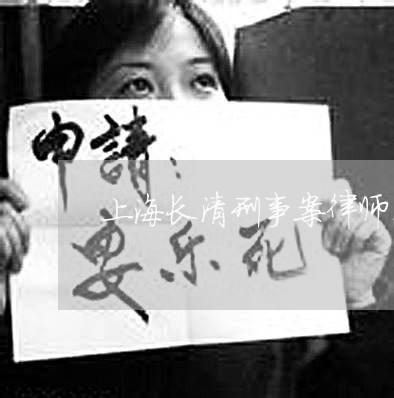 申請：
上海长清刑事案律师
安乐死